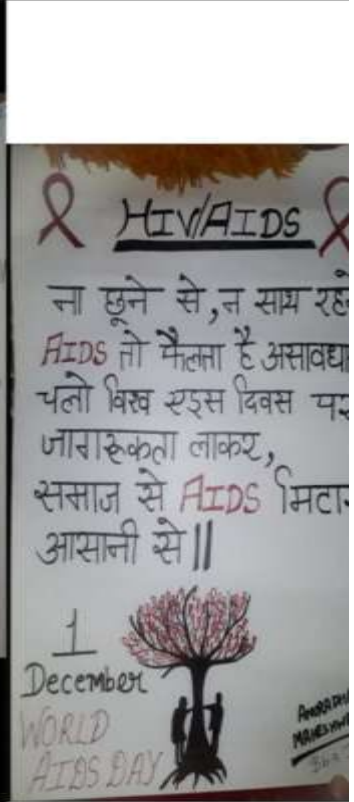 HIV/AIDS
ना छूने से, न साथ रहने
AIDS तो फैलता है असावधा
चलो विश्व एड्स दिवस पर
जागरूकता लाकर,
समाज से AIDS मिटा
आसानी से ||
1
December
WORLD
AIDS DAY
ANURADHA
MAHESHWA